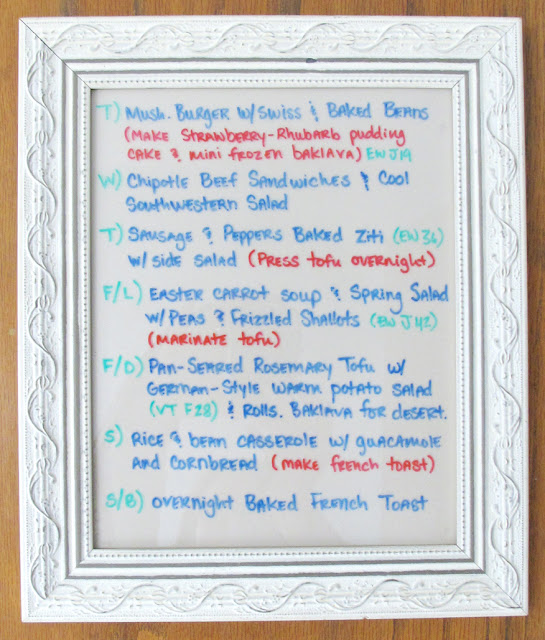 T) Mush. Burger w/ Swiss & Baked Beans
(Make Strawberry-Rhubarb pudding
cake & mini frozen baklava) EW J19
W) Chipotle Beef Sandwiches & Cool
Southwestern Salad
T) Sausage & Peppers Baked Ziti (EW 36)
w/ side salad (Press tofu overnight)
F/L) Easter Carrot Soup & Spring Salad
w/ Peas & Frizzled Shallots (EW J42)
(marinate tofu)
F/D) Pan-Seared Rosemary Tofu w/
German-Style warm potato salad
(VT F28) & Rolls. Baklava for desert.
S) Rice & bean casserole w/ guacamole
and cornbread (make french toast)
S/B) overnight Baked French Toast